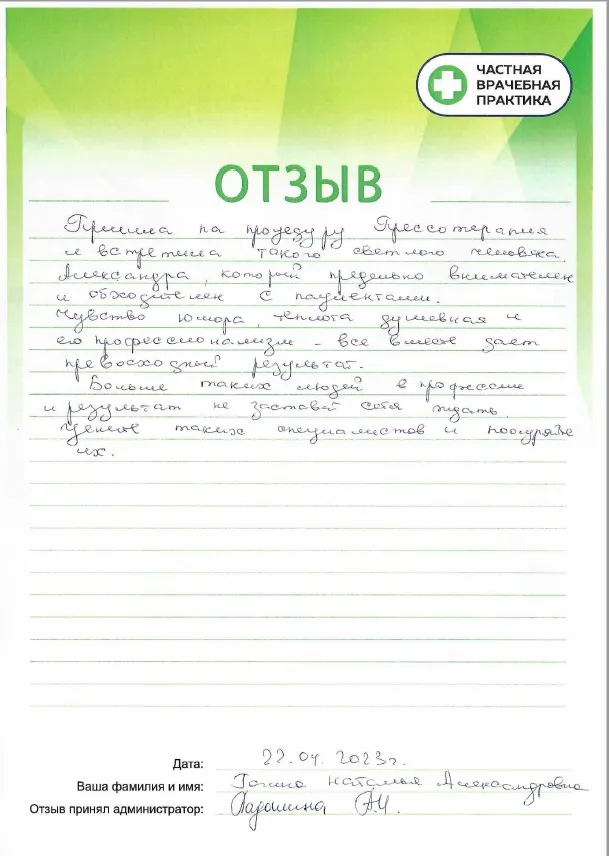 ЧАСТНАЯ
ВРАЧЕБНАЯ
ПРАКТИКА
ОТЗЫВ
Пришла на процедуру Прессотерапия
и встретила такого светлого человека
Александра, который предельно внимателен
и обходителен с пациентами.
Чувство юмора, теплота душевная и
его профессионализм - все вместе дает
превосходный результат.
Больше таких людей в профессии
и результат не заставит себя ждать.
Цените таких специалистов и поощряйте
их.
Дата: 22.04.2023г.
Ваша фамилия и имя: Наталья Александровна
Отзыв принял администратор: